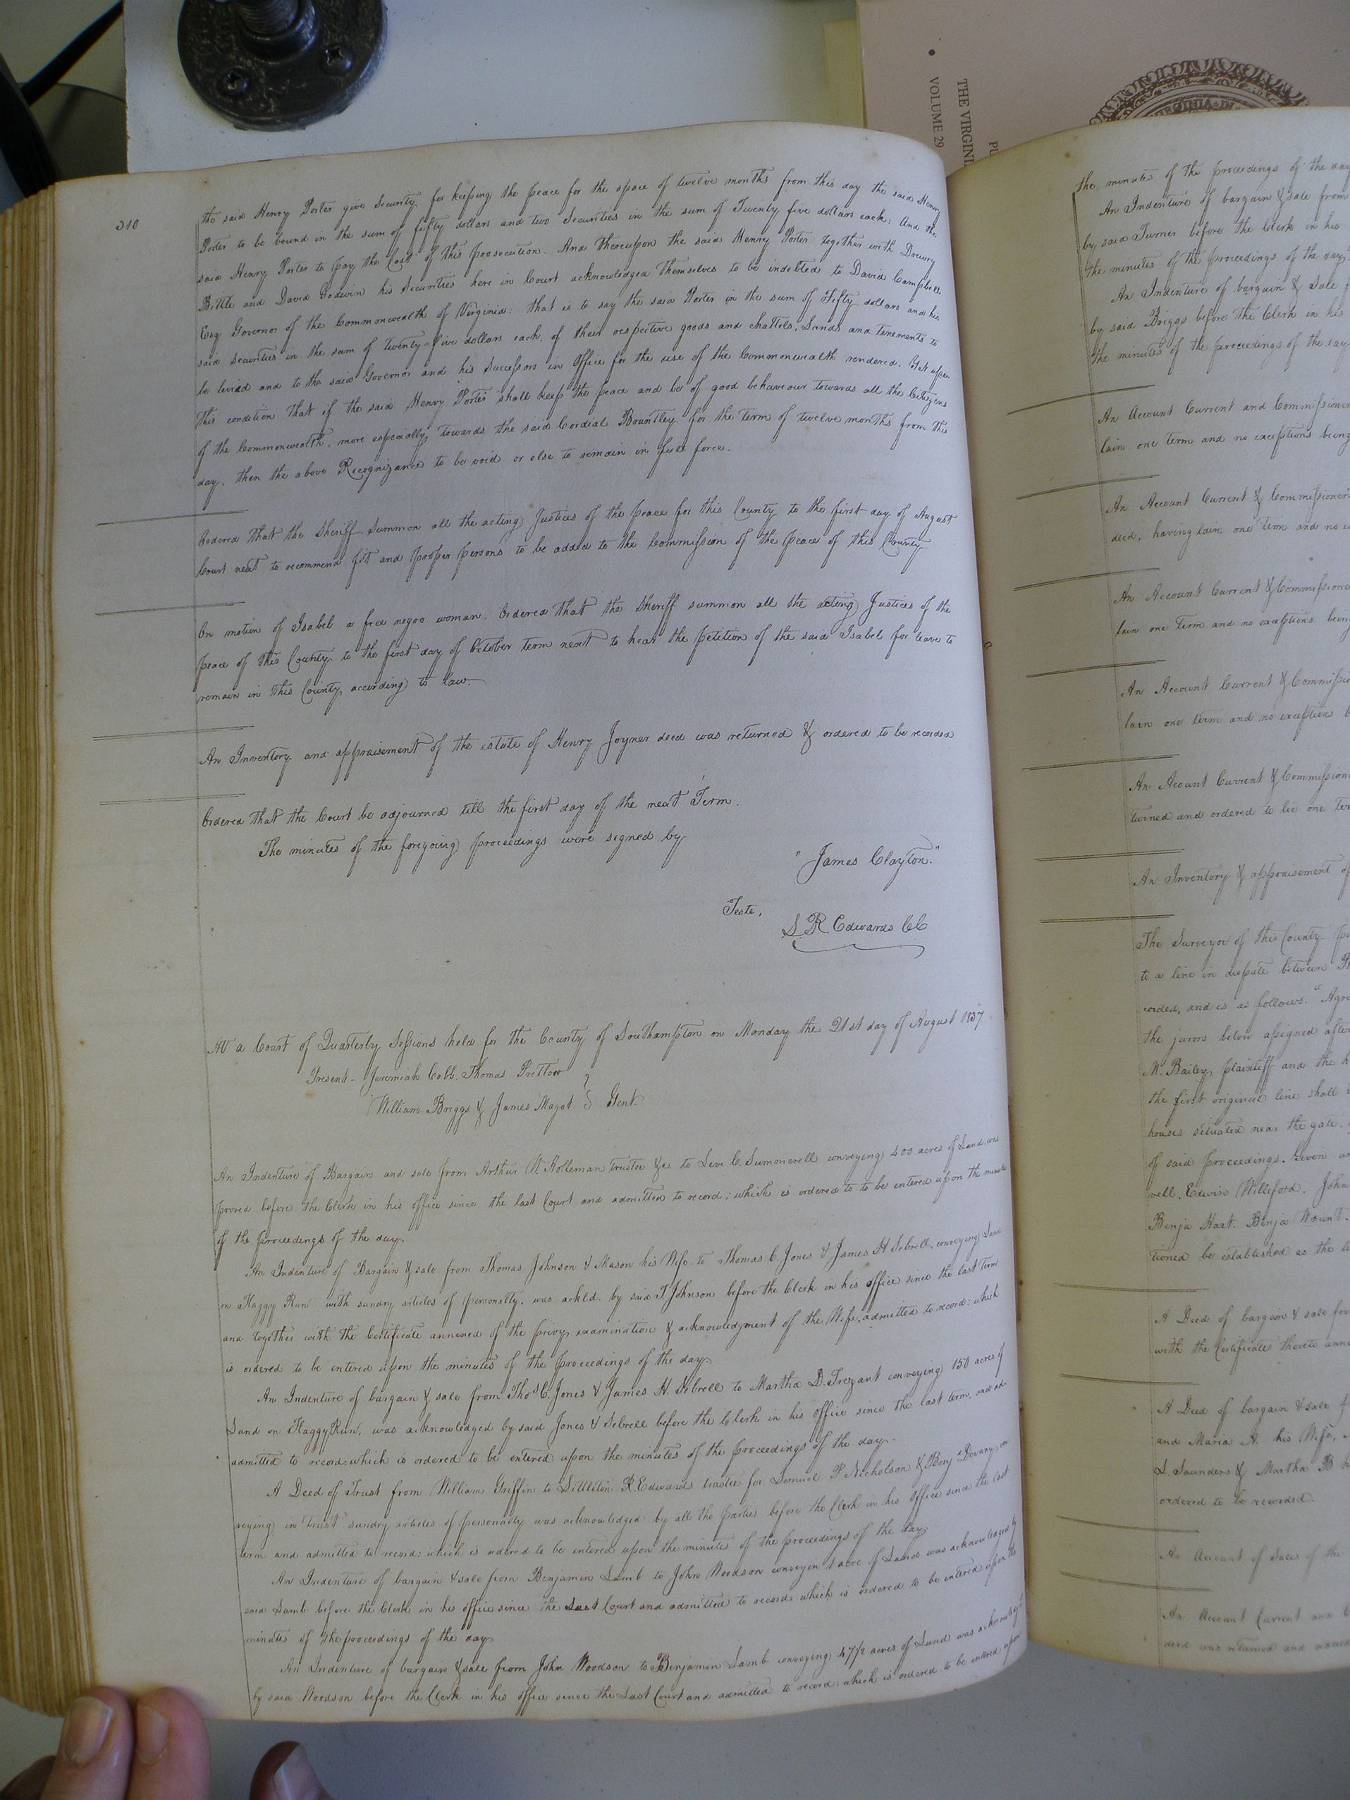 THE VIRGINI
VOLUME 29
PU
VIRGINIA
310
the said Henry Porter give Security for keeping the peace for the space of twelve months from this day the said Henry
Porter to be bound in the sum of fifty dollars and two Securities in the sum of Twenty five dollars each; And the
said Henry Porter to pay the Costs of this prosecution. And thereupon the said Henry Porter together with Drewry
Bittle and David Godwin his Securities here in Court acknowledged themselves to be indebted to David Campbell
Esq Governor of the Commonwealth of Virginia: that is to say the said Porter in the sum of Fifty dollars and his
said Securities in the sum of twenty-five dollars each, of their respective goods and chattels, Lands and tenements to
be levied and to the said Governor and his Successors in Office for the use of the Commonwealth rendered. Yet upon
this condition that if the said Henry Porter shall keep the peace and be of good behaviour towards all the Citizens
of the Commonwealth, more especially towards the said Cordial Bountley for the term of twelve months from this
day, then the above Recognizance to be void or else to remain in full force.
Ordered that the Sheriff Summon all the acting Justices of the peace for this County to the first day of August
Court next to recommend fit and proper persons to be added to the Commission of the peace of this County
On motion of Isabel a free negro woman. Ordered that the Sheriff summon all the acting Justices of the
peace of this County to the first day of October term next to hear the petition of the said Isabel for leave to
remain in this County according to law.
An Inventory and appraisement of the estate of Henry Joyner decd was returned & ordered to be recorded
Ordered that the Court be adjourned till the first day of the next Term.
The minutes of the foregoing proceedings were signed by
"James Clayton."
Teste,
L R Edwards CC
At a Court of Quarterly Sessions held for the County of Southampton on Monday the 21st day of August 1837
Present - Jeremiah Cobb, Thomas Pretlow
William Briggs & James Maget } Gent.
An Indenture of Bargain and sale from Arthur Holleman trustee &c to Levi C. Summerell conveying 400 acres of Land was
proved before the Clerk in his office since the last Court and admitted to record; which is ordered to to be entered upon the minutes
of the proceedings of the day.
An Indenture of Bargain & sale from Thomas Johnson & Mason his Wife to Thomas C. Jones & James H Sebrell, conveying Land
on Flaggy Run with sundry articles of personalty, was ackld. by said T Johnson before the Clerk in his office since the last term
and together with the Certificate annexed of the privy examination & acknowledgment of the Wife, admitted to record: which
is ordered to be entered upon the minutes of the proceedings of the day.
An Indenture of bargain & sale from Thos C. Jones & James H. Sebrell to Martha D. Trezvant conveying 150 acres of
Land on Flaggy Run, was acknowledged by said Jones & Sebrell before the Clerk in his office since the last term, and
admitted to record: which is ordered to be entered upon the minutes of the proceedings of the day.
A Deed of Trust from William Griffin to Littleton R. Edwards trustee for Samuel P. Nicholson & Benj Devany, con
veying in trust sundry articles of personalty was acknowledged by all the parties before the Clerk in his office since the last
term and admitted to record: which is ordered to be entered upon the minutes of the proceedings of the day.
An Indenture of bargain & sale from Benjamin Lamb to John Woodson conveyg 1 acre of Land was acknowledged by
said Lamb before the Clerk in his office since the last Court and admitted to record: which is ordered to be entered upon the
minutes of the proceedings of the day.
An Indenture of bargain & sale from John Woodson to Benjamin Lamb conveying 47 1/2 acres of Land was acknowledged
by said Woodson before the Clerk in his office since the Last Court and admitted to record: which is ordered to be entered upon
the minutes of the proceedings of the day
An Indenture of bargain & sale from
by said Turner before the Clerk in his
the minutes of the proceedings of the day
An Indenture of bargain & sale
by said Briggs before the Clerk in his
the minutes of the proceedings of the day
An Account Current and Commissioner
lain one term and no exceptions being
An Account Current & Commissioner
decd, having lain one term and no
An Account Current & Commissioner
lain one term and no exceptions being
An Account Current & Commissio
lain one term and no exception
An Account Current & Commission
turned and ordered to lie one ter
An Inventory & appraisement of
The Surveyor of this County
to a line in dispute between
corded, and is as follows. "Agre
the jurors below assigned after
Mr Bailey, plaintiff and the
the first original line shall
houses situated near the gate.
of said proceedings. Given
well. Edwin Williford. John
Benja Hart. Benja Wount
tioned be established as the
A Deed of bargain & sale fro
with the Certificate thereto ann
A Deed of bargain & sale
and Maria A. his Wife,
L. Saunders & Martha B
ordered to be recorded.
An Account of Sales of the
An Account Current and
decd was returned and